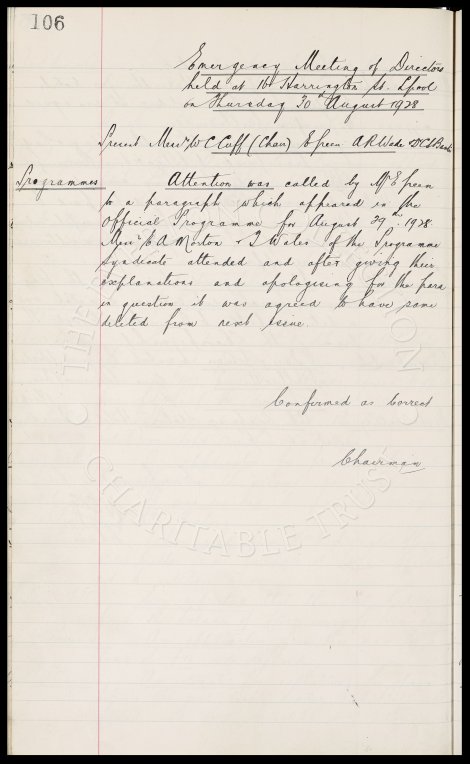 106
Emergency Meeting of Directors
held at 16 Harrington St. Lpool
on Thursday 30th August 1928
Present Messrs W C Cuff (Chair) E Green A R Wade & D C L Banks
Programmes
Attention was called by Mr E Green
to a paragraph which appeared in the
Official Programme for August 29th. 1928
Messrs C A Morton & J Wales of the Programme
Syndicate attended and after giving their
explanations and apologising for the para
in question it was agreed to have same
deleted from next issue.
Confirmed as Correct
Chairman
CHARITABLE TRUST